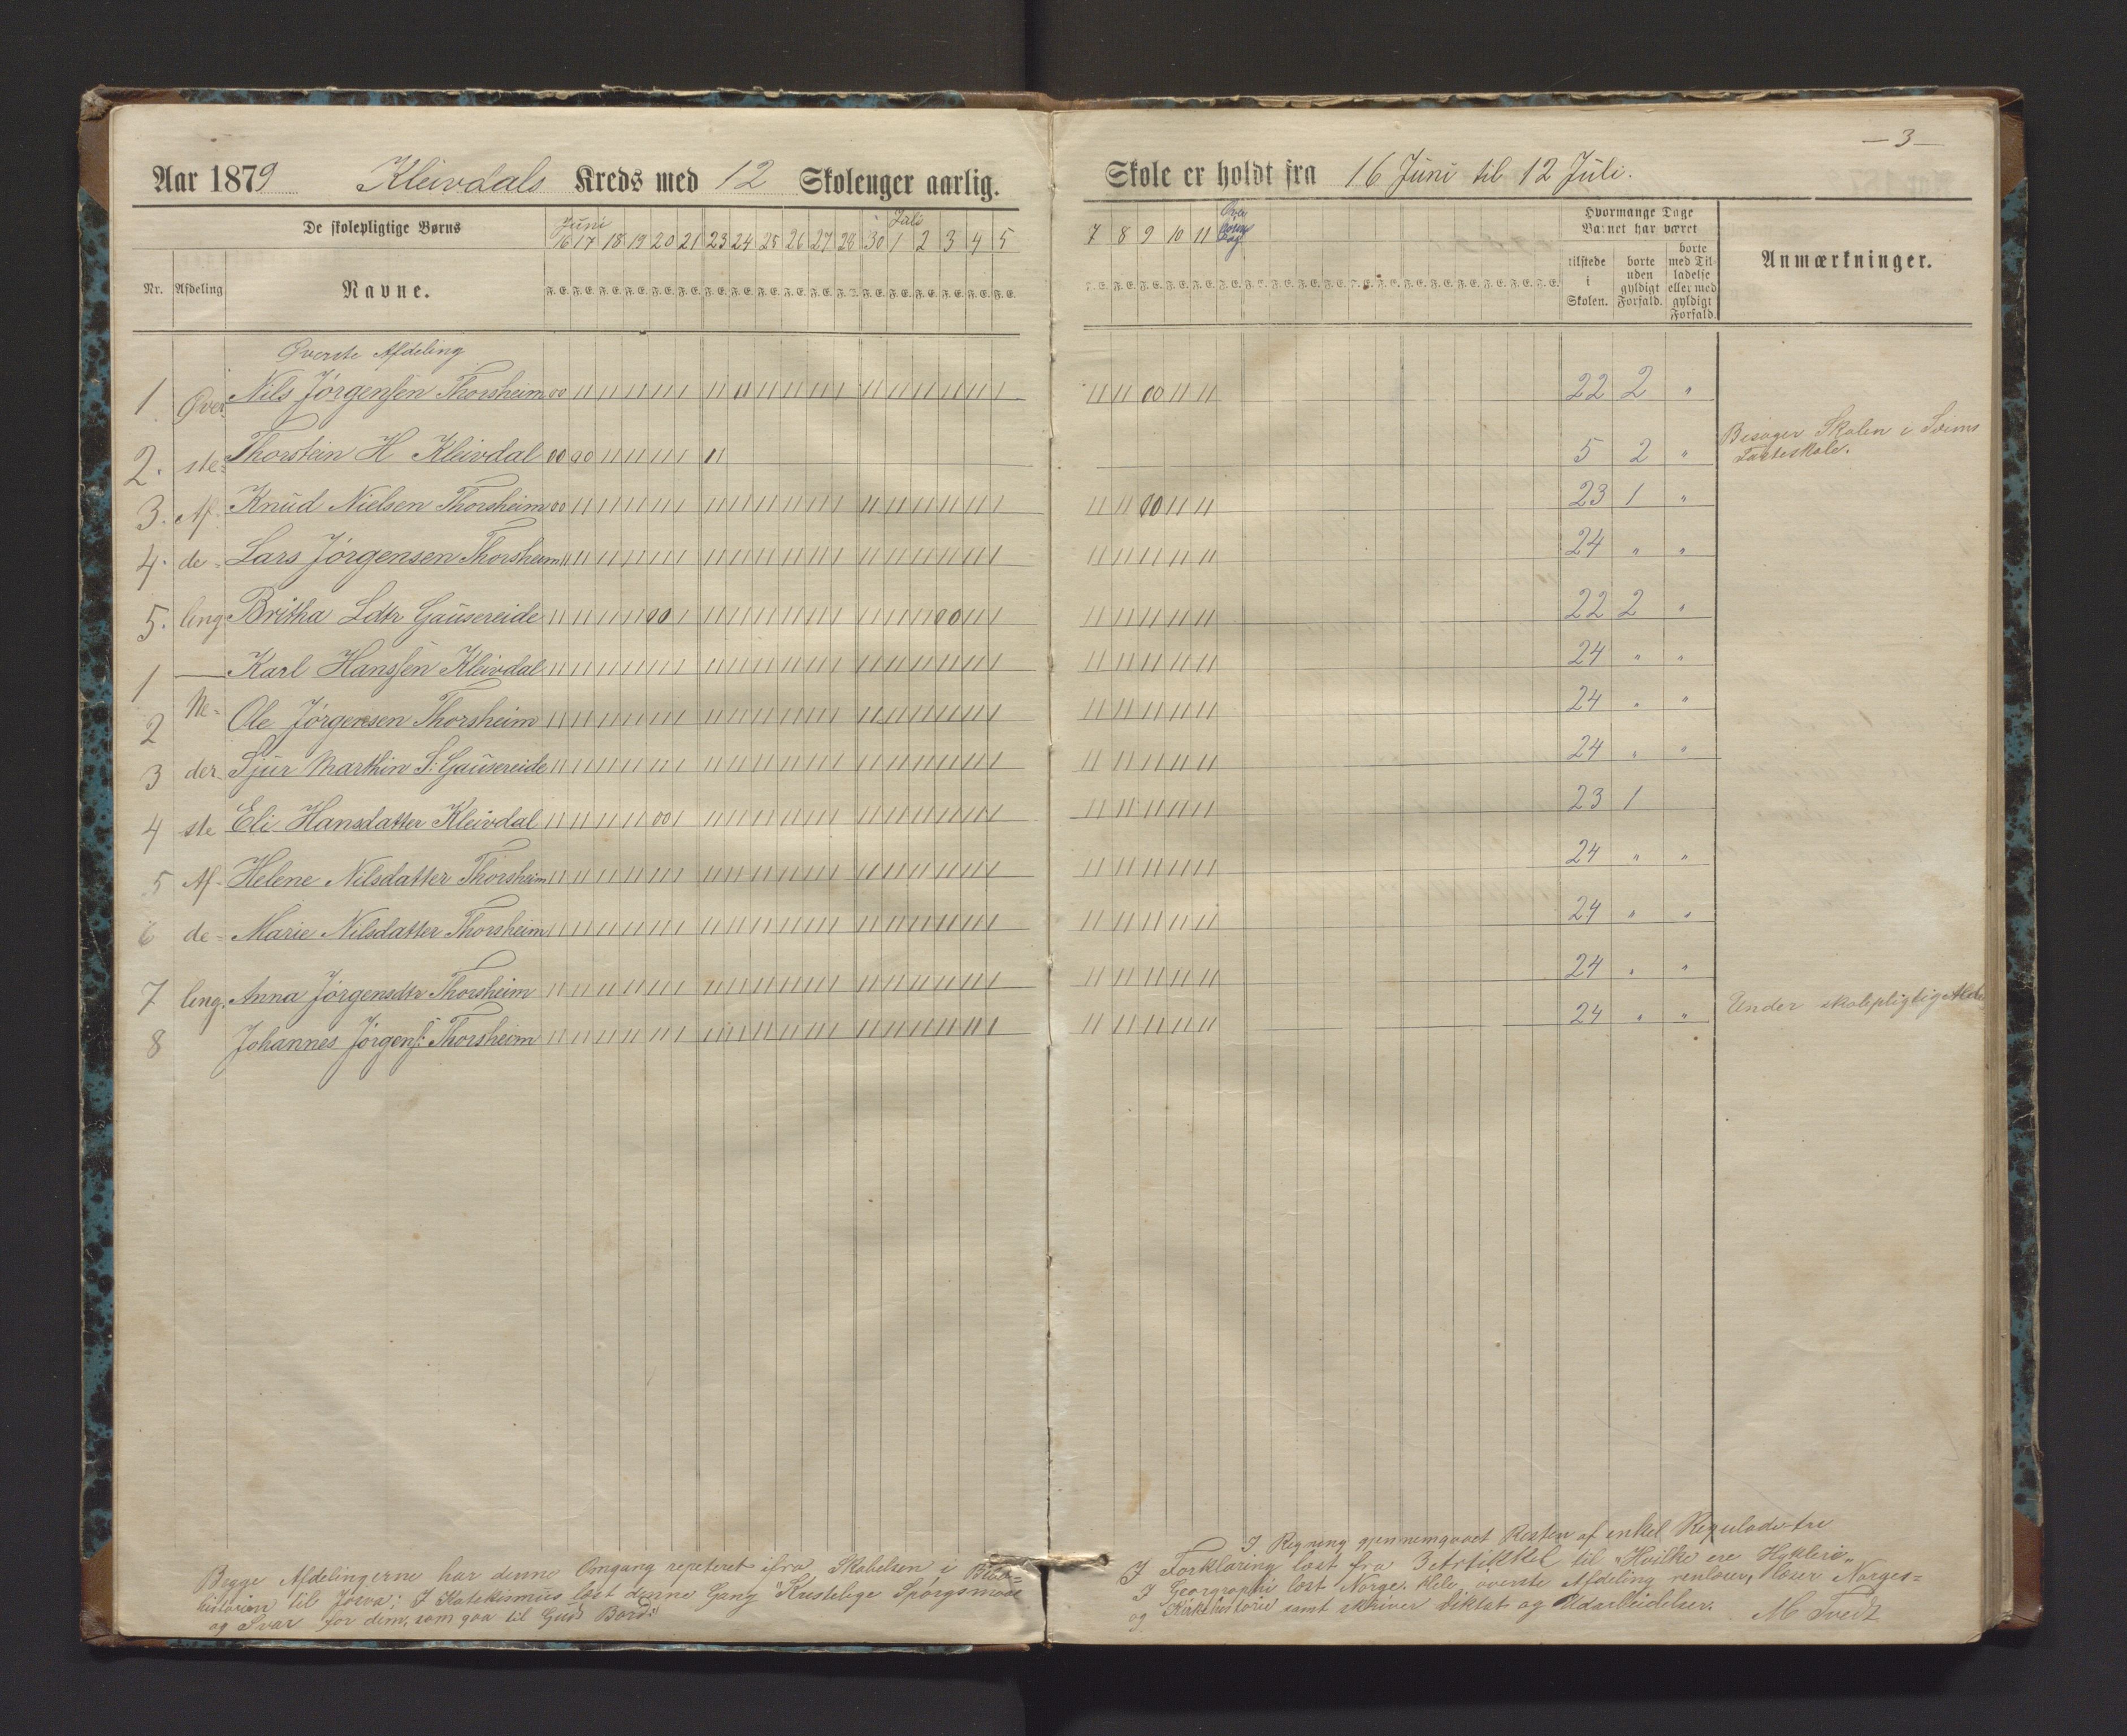 — 3 —
Aar 1879 Kleivdals Kreds med 12 Skoleuger aarlig.
Skole er holdt fra 16 Juni til 12 Juli.
De skolepligtige Børns
Nr. Afdeling Navne.
Juni Juli
16 17 18 19 20 21 23 24 25 26 27 28 30 1 2 3 4 5
7 8 9 10 11
F. E. F. E. F. E. F. E. F. E. F. E. F. E. F. E. F. E. F. E. F. E. F. E. F. E. F. E. F. E. F. E. F. E. F. E.
Hvormange Dage
Barnet har været
tilstede i Skolen.
borte uden gyldigt Forfald.
borte med Tilladelse eller med gyldigt Forfald.
Anmærkninger.
Øverste Afdeling
1 Øver Nils Jörgensen Thorsheim 22 2 "
2. ste Thorstein H Kleivdal 5 2 " Besøger Skolen i
3. Af- Knud Nielsen Thorsheim 23 1 "
4. de- Lars Jörgensen Thorsheim 24 " "
5. ling Britha Ldtr Gausereide 22 2 "
1 — Karl Hansen Kleivdal 24 " "
2 Ne- Ole Jörgensen Thorsheim 24 " "
3 der- Sjur Marthin S: Gausereide 24 " "
4 ste Eli Hansdatter Kleivdal 23 1
5 Af- Helene Nilsdatter Thorsheim 24 " "
6 de- Marie Nilsdatter Thorsheim 24 " "
7 ling. Anna Jörgensdtr Thorsheim 24 " "
8 Johannes Jörgens: Thorsheim 24 " " Under skolepligtig Alder
Begge Afdelingerne har denne Omgang repeteret ifra Skabelsen i Bibel=
historien til Josva; I Katekismus læst denne Gang "Kristelige Spörgsmaal
og Svar for dem, som gaa til Guds Bord."
I Regning gjennemgaaet Resten af enkel Reguladetre
I Forklaring læst fra 3 Artikkel til "Hvilke ere Hyklere"
I Geographi læst Norge. Hele øverste Afdeling renlæser, læser Norges=
og Kirkehistorie samt skriver Diktat og Udarbeidelser.
M Tvedt